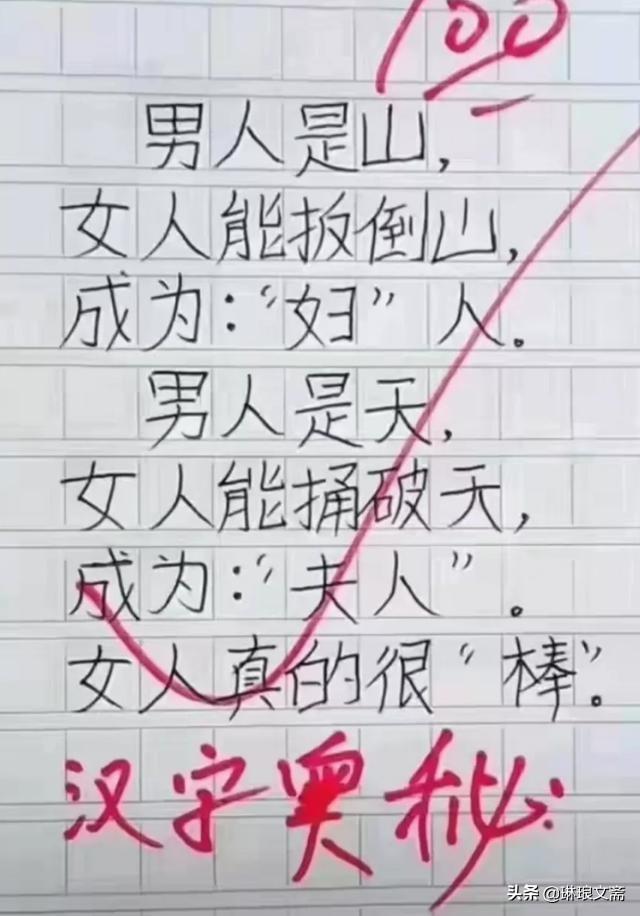 100
男人是山，
女人能扳倒山，
成为：“妇”人。
男人是天，
女人能捅破天，
成为：“夫人”。
女人真的很“棒”。
汉字奥秘
头条 @琳琅文斋